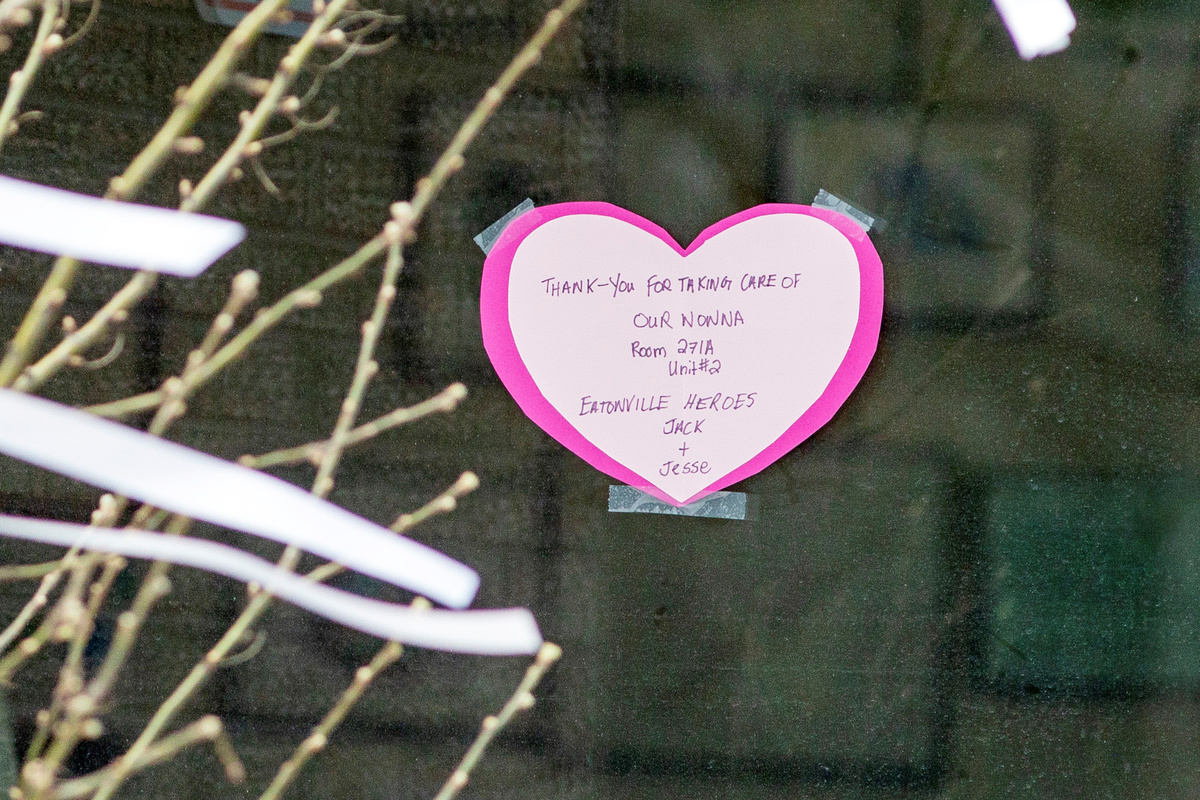 THANK-YOU FOR TAKING CARE OF
OUR NONNA
Room 271A
Unit#2
EATONVILLE HEROES
JACK
+
Jesse